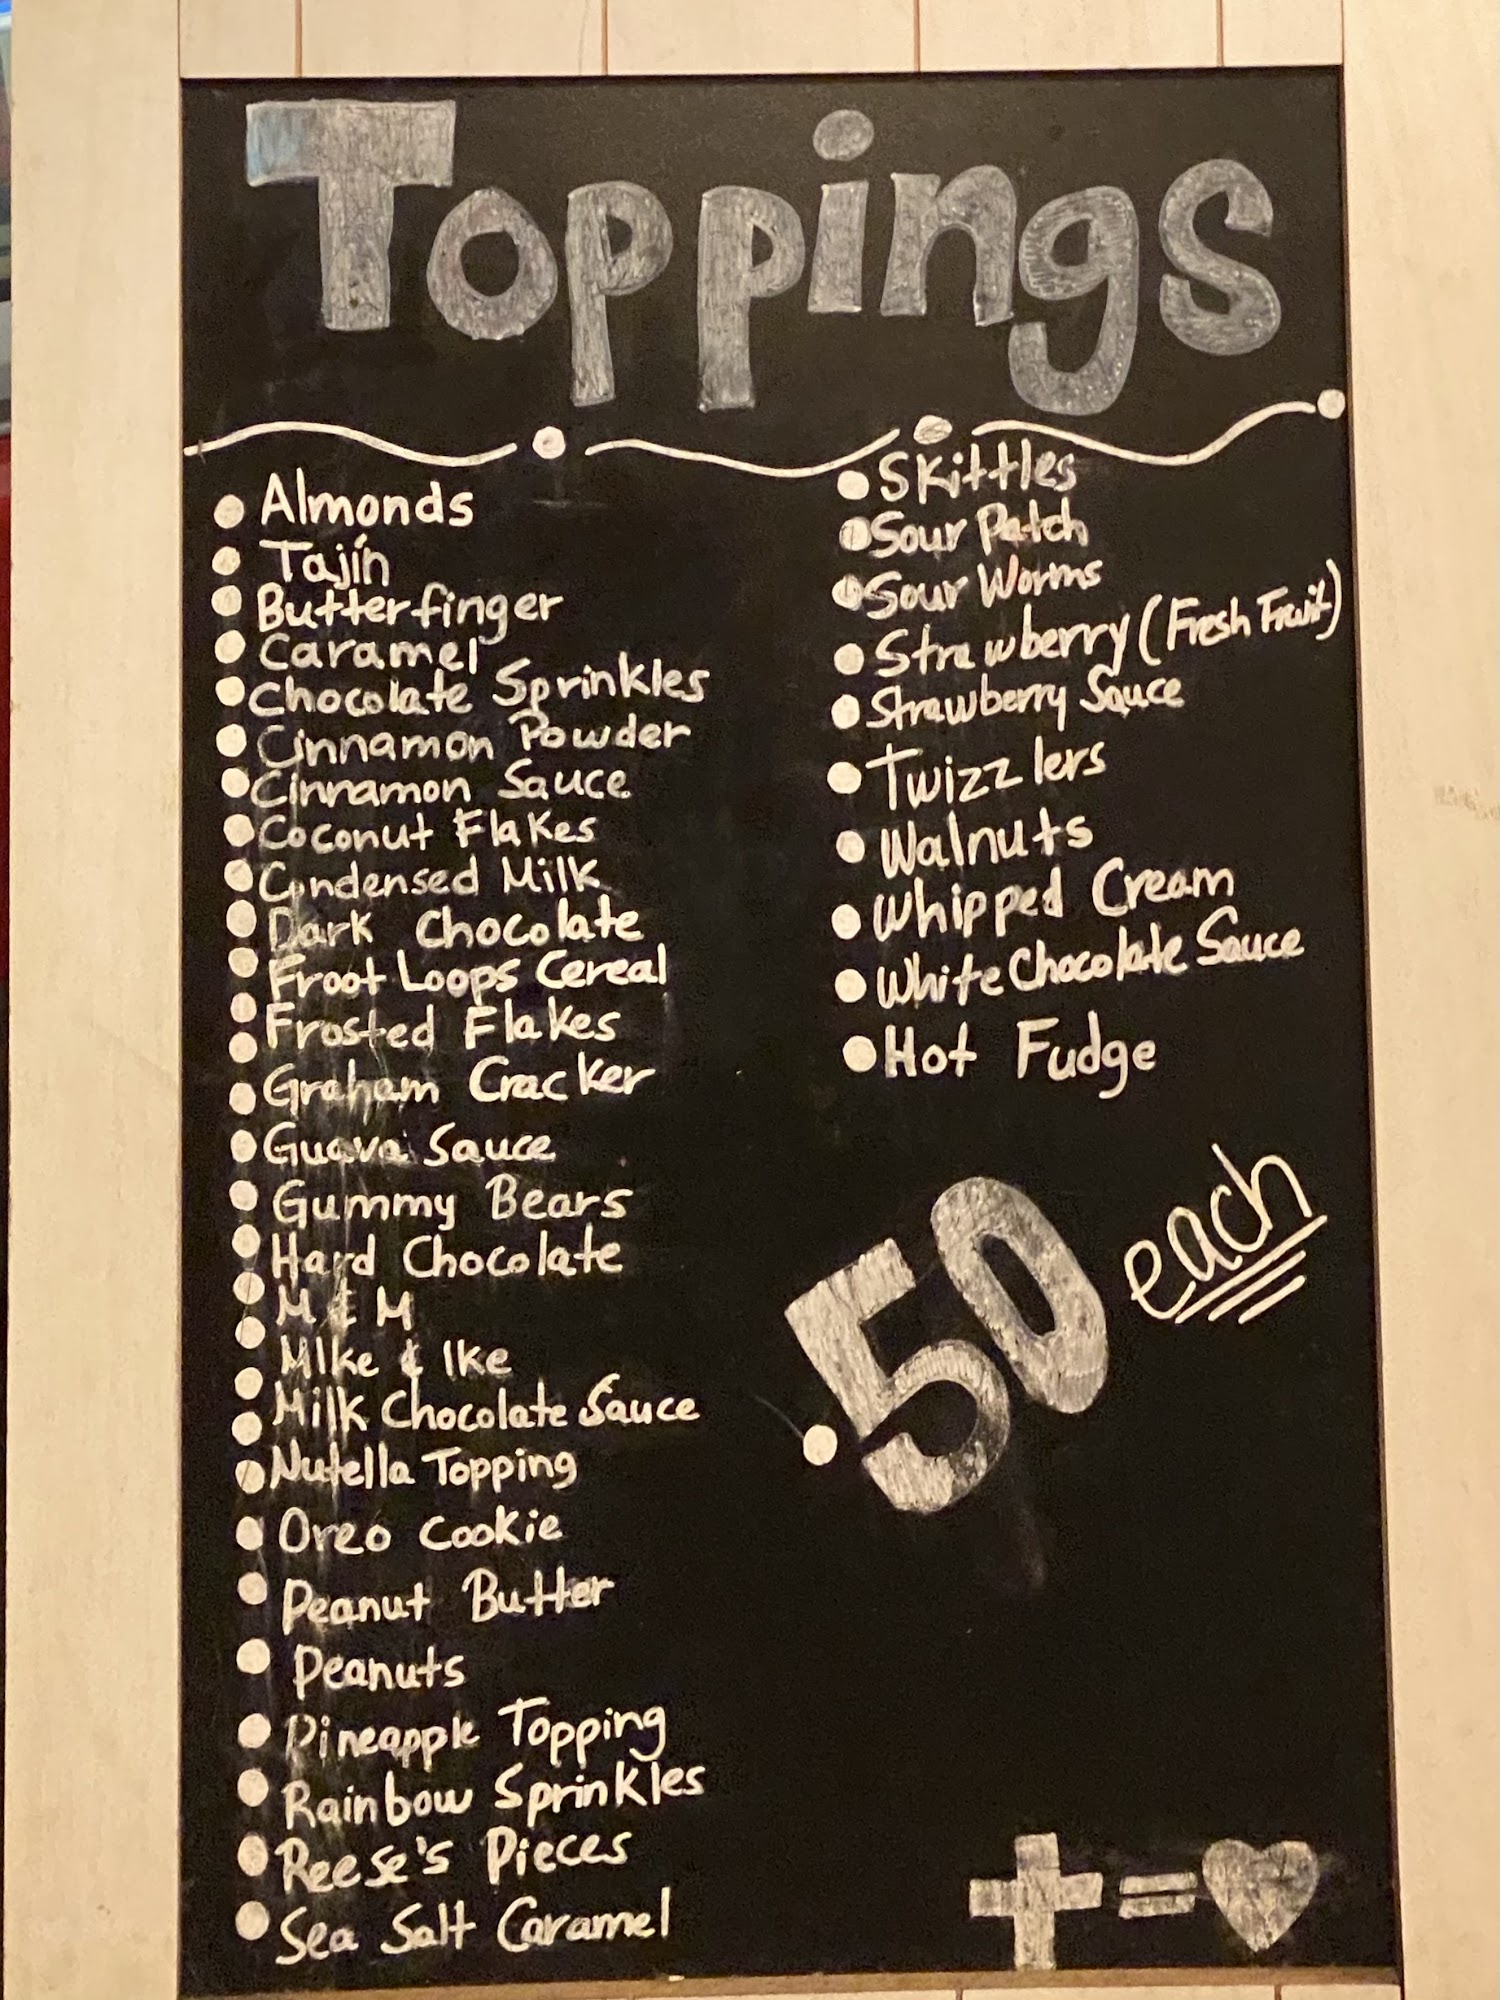 Toppings
Almonds
Tajín
Butterfinger
Caramel
Chocolate Sprinkles
Cinnamon Powder
Cinnamon Sauce
Coconut Flakes
Condensed Milk
Dark Chocolate
Froot Loops Cereal
Frosted Flakes
Graham Cracker
Guava Sauce
Gummy Bears
Hard Chocolate
M & M
MIke & Ike
Milk Chocolate Sauce
Nutella Topping
Oreo Cookie
Peanut Butter
Peanuts
Pineapple Topping
Rainbow Sprinkles
Reese's Pieces
Sea Salt Caramel
Skittles
Sour Patch
Sour Worms
Strawberry (Fresh Fruit)
Strawberry Sauce
Twizzlers
Walnuts
Whipped Cream
White Chocolate Sauce
Hot Fudge
.50 each
+ = ♥